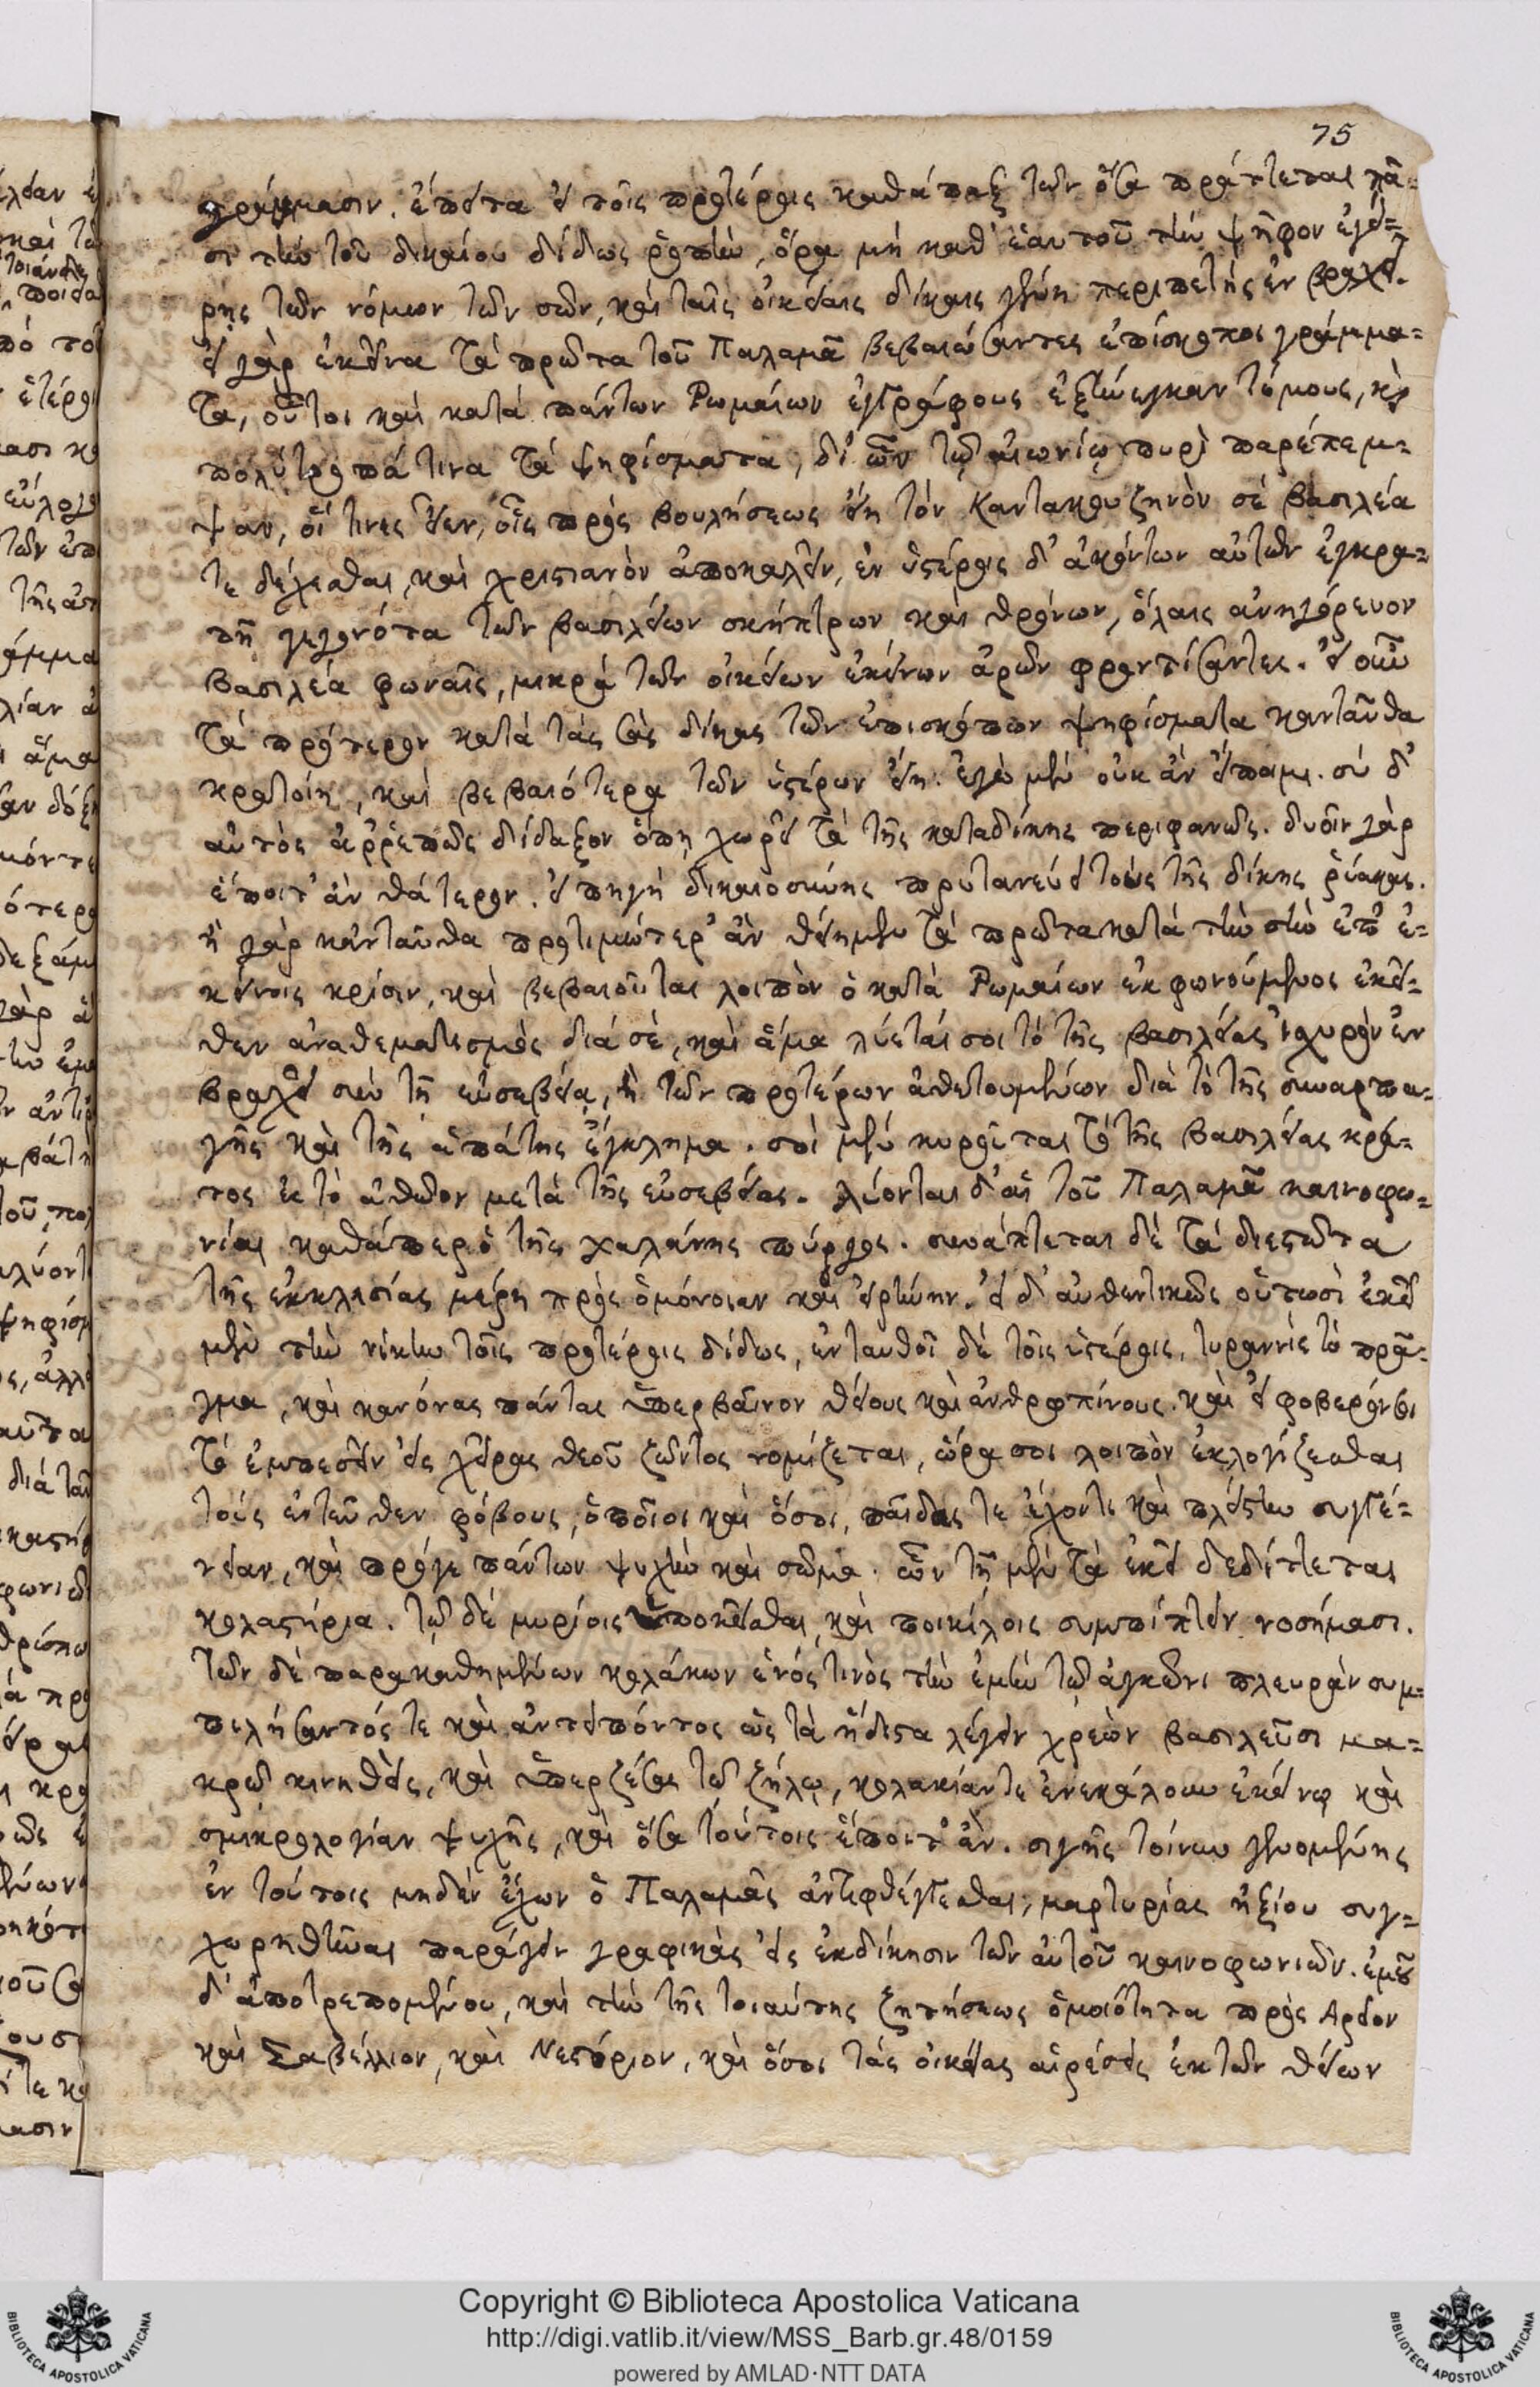 75
γράμμασιν. ἔπειτα εἰ τοῖς προτέροις καθάπαξ τῶν ὅσα πράττεται πᾶ-
σι τὴν τοῦ δικαίου δίδως ῥοπὴν, ὅρα μὴ καθ' ἑαυτοῦ τὴν ψῆφον ἐγεί-
ρῃς τῶν νόμων τῶν σῶν, καὶ ταῖς οἰκείαις δίκαις γένῃ περιπετὴς ἐν βραχεῖ.
εἰ γὰρ ἐκεῖνα τὰ πρῶτα τοῦ Παλαμᾶ βεβαιώσαντες ἐπίσκοποι γράμμα-
τα, οὗτοι καὶ κατὰ πάντων Ρωμαίων ἐγγράφους ἐξήνεγκαν τόμους, καὶ
πολύτροπά τινα τὰ ψηφίσματα, δι' ὧν τῷ αἰωνίῳ πυρὶ παρέπεμ-
ψαν, οἵ τινες εἶεν, οἷς πρὸς βουλήσεως εἴη τὸν Καντακουζηνὸν σὲ βασιλέα
τε δέχεσθαι, καὶ χριστιανὸν ἀποκαλεῖν, ἐν ὑστέροις δ' ἀκόντων αὐτῶν ἐγκρα-
τῆ γεγονότα τῶν βασιλείων σκήπτρων καὶ θρόνων, ὅλαις ἀνηγόρευον
βασιλέα φωναῖς, μικρὰ τῶν οἰκείων ἐκείνων ἀρῶν φροντίσαντες. εἰ οὖν
τὰ πρότερον κατὰ τὰς σὰς δίκας τῶν ἐπισκόπων ψηφίσματα κἀνταῦθα
κρατοίη, καὶ βεβαιότερα τῶν ὑστέρων εἴη. ἐγὼ μὲν οὐκ ἂν εἴπαιμι. σὺ δ'
αὐτὸς ἀῤῥεπῶς δίδαξον ὅπη χωρεῖ τὰ τῆς καταδίκης περιφανῶς. δυοῖν γὰρ
ἕποιτ' ἂν θάτερον. εἰ πηγὴ δικαιοσύνης πρυτανεύει τοὺς τῆς δίκης ῥύακας.
ἢ γὰρ κἀνταῦθα προτιμώτερ' ἂν θείημεν τὰ πρῶτα κατὰ τὴν σὴν ἐπ' ἐ-
κείνοις κρίσιν, καὶ βεβαιοῦται λοιπὸν ὁ κατὰ Ρωμαίων ἐκφωνούμενος ἐκεῖ-
θεν ἀναθεματισμὸς διὰ σὲ, καὶ ἅμα λύεταί σοι τὸ τῆς βασιλείας ἐχυρὸν ἐν
βραχεῖ σὺν τῇ εὐσεβείᾳ, ἢ τῶν προτέρων ἀθετουμένων διὰ τὸ τῆς συναρπα-
γῆς καὶ τῆς ἀπάτης ἔγκλημα. σοὶ μὲν κυροῦται τὸ τῆς βασιλείας κρά-
τος ἐς τὸ ἄθῳον μετὰ τῆς εὐσεβείας. λύονται δ' αἱ τοῦ Παλαμᾶ καινοφω-
νίαι καθάπερ ὁ τῆς χαλάνης πύργος. συνάπτεται δὲ τὰ διεστῶτα
τῆς ἐκκλησίας μέρη πρὸς ὁμόνοιαν καὶ εἰρήνην. εἰ δ' αὐθεντικῶς οὑτωσὶ ἐκεῖ
μὲν τὴν νίκην τοῖς προτέροις δίδως, ἐνταυθοῖ δὲ τοῖς ὑστέροις, τυραννὶς τὸ πρᾶ-
γμα, καὶ κανόνας πάντας ὑπερβαῖνον θείους καὶ ἀνθρωπίνους. καὶ εἰ φοβερόν σοι
τὸ ἐμπεσεῖν εἰς χεῖρας θεοῦ ζῶντος νομίζεται, ὥρα σοι λοιπὸν ἐκλογίζεσθαι
τοὺς ἐντεῦθεν φόβους, ὁποῖοι καὶ ὅσοι, παῖδάς τε ἔχοντι καὶ πλείστην συγγέ-
νειαν, καὶ πρό γε πάντων ψυχὴν καὶ σῶμα. ὧν τῇ μὲν τὰ ἐκεῖ δεδίττεται
κολαστήρια. τῷ δὲ μυρίοις ὑποκεῖσθαι, καὶ ποικίλοις συμπίπτειν νοσήμασι.
τῶν δὲ παρακαθημένων κολάκων ἑνός τινὸς τὴν ἐμὴν τῷ ἀγκῶνι πλευρὰν συμ-
πιλήσαντός τε καὶ ἀντειπόντος ὡς τὰ ἥδιστα λέγειν χρεὼν βασιλεῦσι μα-
κρῷ κινηθεὶς, καὶ ὑπερζέσας τῷ ζήλῳ, κολακίαν τε ἐνεκάλουν ἐκείνῳ καὶ
σμικρολογίαν ψυχῆς, καὶ ὅσα τούτοις ἕποιτ' ἄν. σιγῆς τοίνυν γενομένης
ἐν τούτοις μηδὲν ἔχων ὁ Παλαμᾶς ἀντιφθέγγεσθαι, μαρτυρίας ἠξίου συγ-
χωρηθῆναι παράγειν γραφικὰς εἰς ἐκδίκησιν τῶν αὐτοῦ καινοφωνιῶν. ἐμοῦ
δ' ἀποτρεπομένου, καὶ τὴν τῆς τοιαύτης ζητήσεως ὁμοιότητα πρὸς Αρειον
καὶ Σαβέλλιον, καὶ Νεστόριον, καὶ ὅσοι τὰς οἰκείας αἱρέσεις ἐκ τῶν θείων
Copyright © Biblioteca Apostolica Vaticana
http://digi.vatlib.it/view/MSS_Barb.gr.48/0159
powered by AMLAD·NTT DATA
BIBLIOTECA APOSTOLICA VATICANA
BIBLIOTECA APOSTOLICA VATICANA